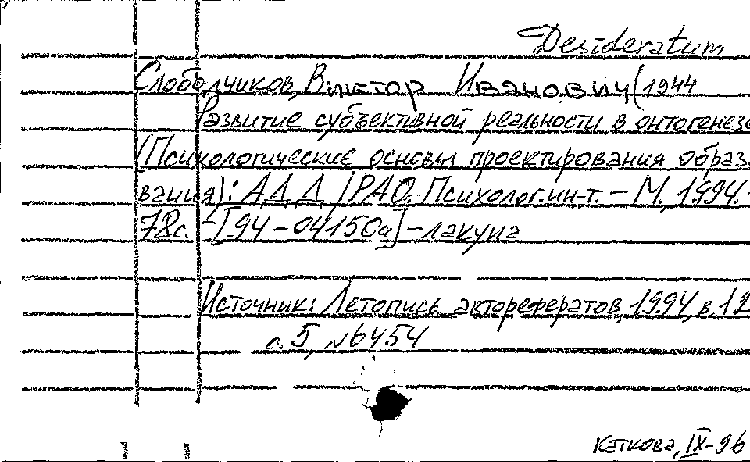 Desideratum
Слободчиков, Виктор Иванович (1944
Развитие субъективной реальности в онтогенезе
(Психологические основы проектирования образ
вания): АДД / РАО. Психолог. ин-т. – М., 1994. –
78с. – [94-04150а] – лакуна
Источник: Летопись авторефератов, 1994, в. 12
с. 5, №6454
Каткова, IX-96